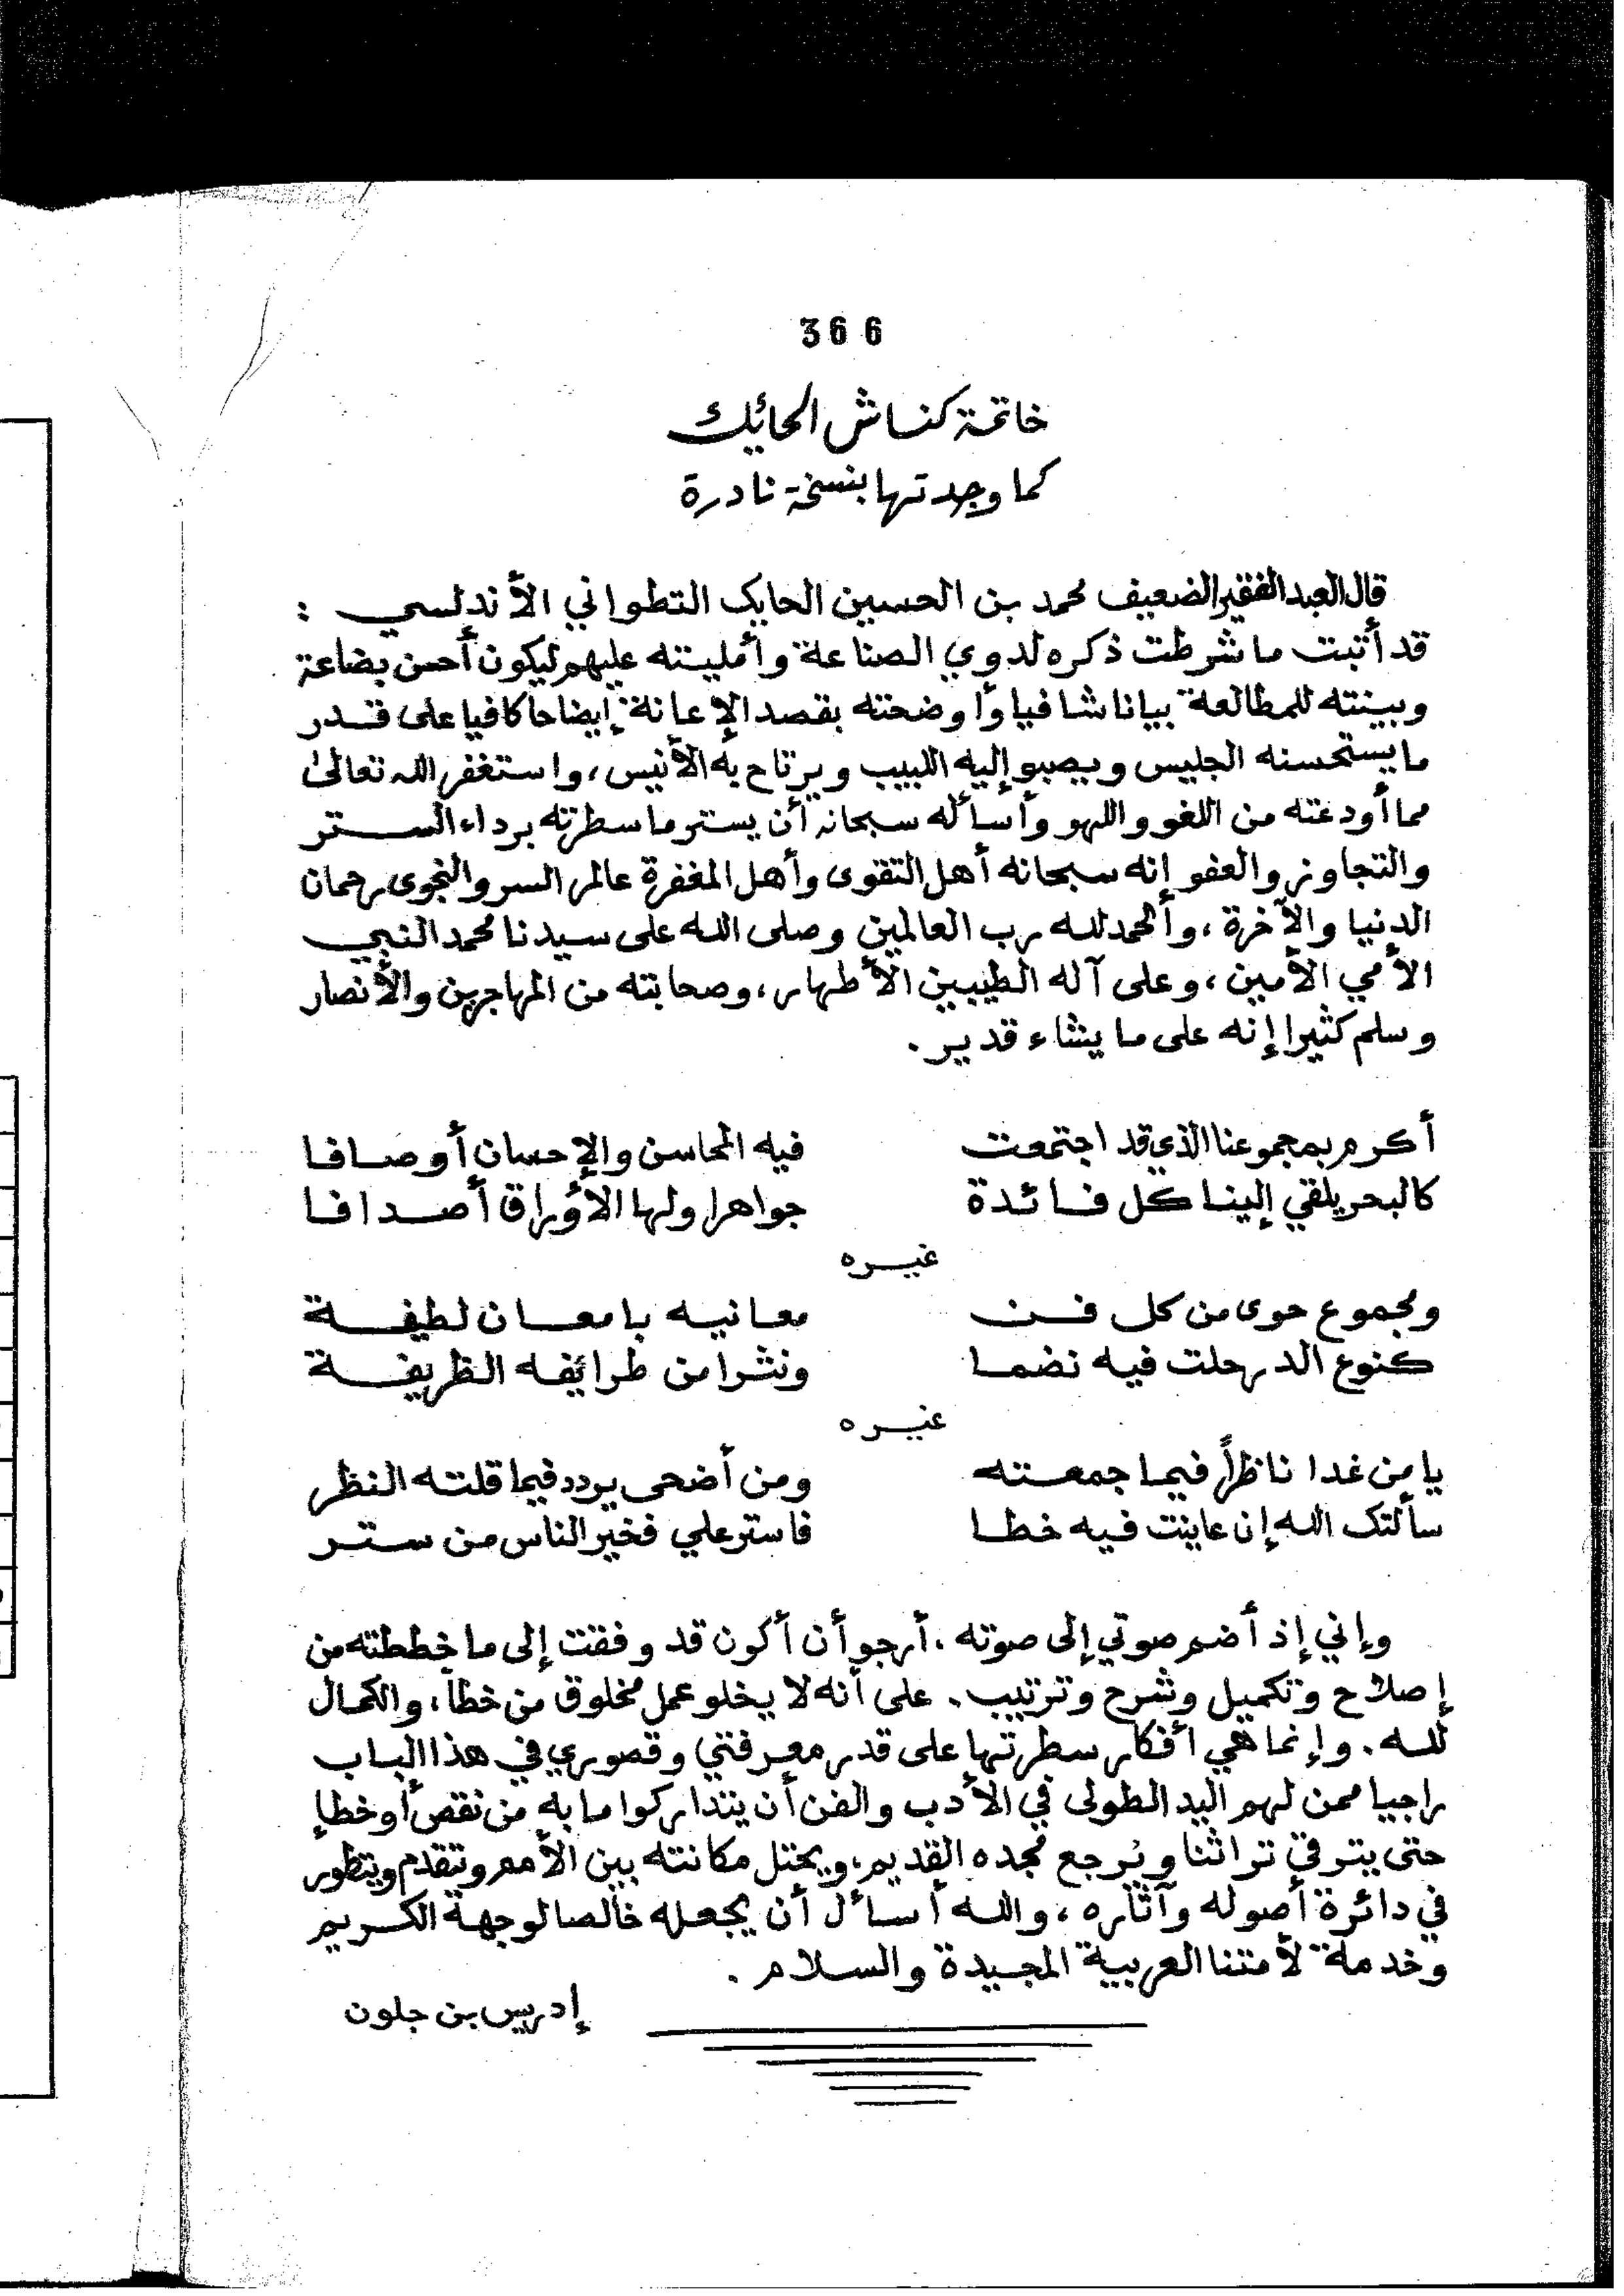 366
خاتمة كناش الحائك
كما وجدتها بنسخة نادرة
قال العبد الفقير الضعيف محمد بن الحسين الحايك التطواني الأندلسي :
قد أثبت ما شرطت ذكره لدوي الصناعة وأمليته عليهم ليكون أحسن بضاعة
وبينته للمطالعة بيانا شافيا وأوضحته بقصد الإعانة إيضاحا كافيا على قدر
ما يستحسنه الجليس ويصبو إليه اللبيب ويرتاح به الأنيس، واستغفر الله تعالى
مما أودعته من اللغو واللهو وأسأله سبحانه أن يستر ما سطرته برداء الستر
والتجاوز والعفو إنه سبحانه أهل التقوى وأهل المغفرة عالم السر والنجوى رحمان
الدنيا والآخرة، وألحمد لله رب العالمين وصلى الله على سيدنا محمد النبي
الأمي الأمين، وعلى آله الطيبين الأطهار، وصحابته من المهاجرين والأنصار
وسلم كثيرا إنه على ما يشاء قدير.
أكرم بمجموعنا الذي قد اجتمعت فيه المحاسن والإحسان أوصافا
كالبحر يلقي إلينا كل فائدة جواهرا ولها الأوراق أصدافا
غيره
ومجموع حوى من كل فن معانيه بامعان لطيفة
كنوع الدر حلت فيه نضما ونثرا من طرائفه الظريفة
غيره
يا من غدا ناظراً فيما جمعته ومن أضحى يردد فيما قلته النظر
سألتك الله إن عاينت فيه خطا فاستر علي فخير الناس من ستر
وإني إذ أضم صوتي إلى صوته، أرجو أن أكون قد وفقت إلى ما خططته من
إصلاح وتكميل وشرح وترتيب. على أنه لا يخلو عمل مخلوق من خطأ، والكمال
لله. وإنما هي أفكار سطرتها على قدر معرفتي وقصوري في هذا الباب
راجيا ممن لهم اليد الطولى في الأدب والفن أن يتداركوا ما به من نقص أو خطإ
حتى يترقي تراثنا ويرجع مجده القديم، ويحتل مكانته بين الأمم وتقدم ويتطور
في دائرة أصوله وآثاره، والله أسأل أن يجعله خالصا لوجهة الكريم
وخدمة لأمتنا العربية المجيدة والسلام.
إدريس بن جلون